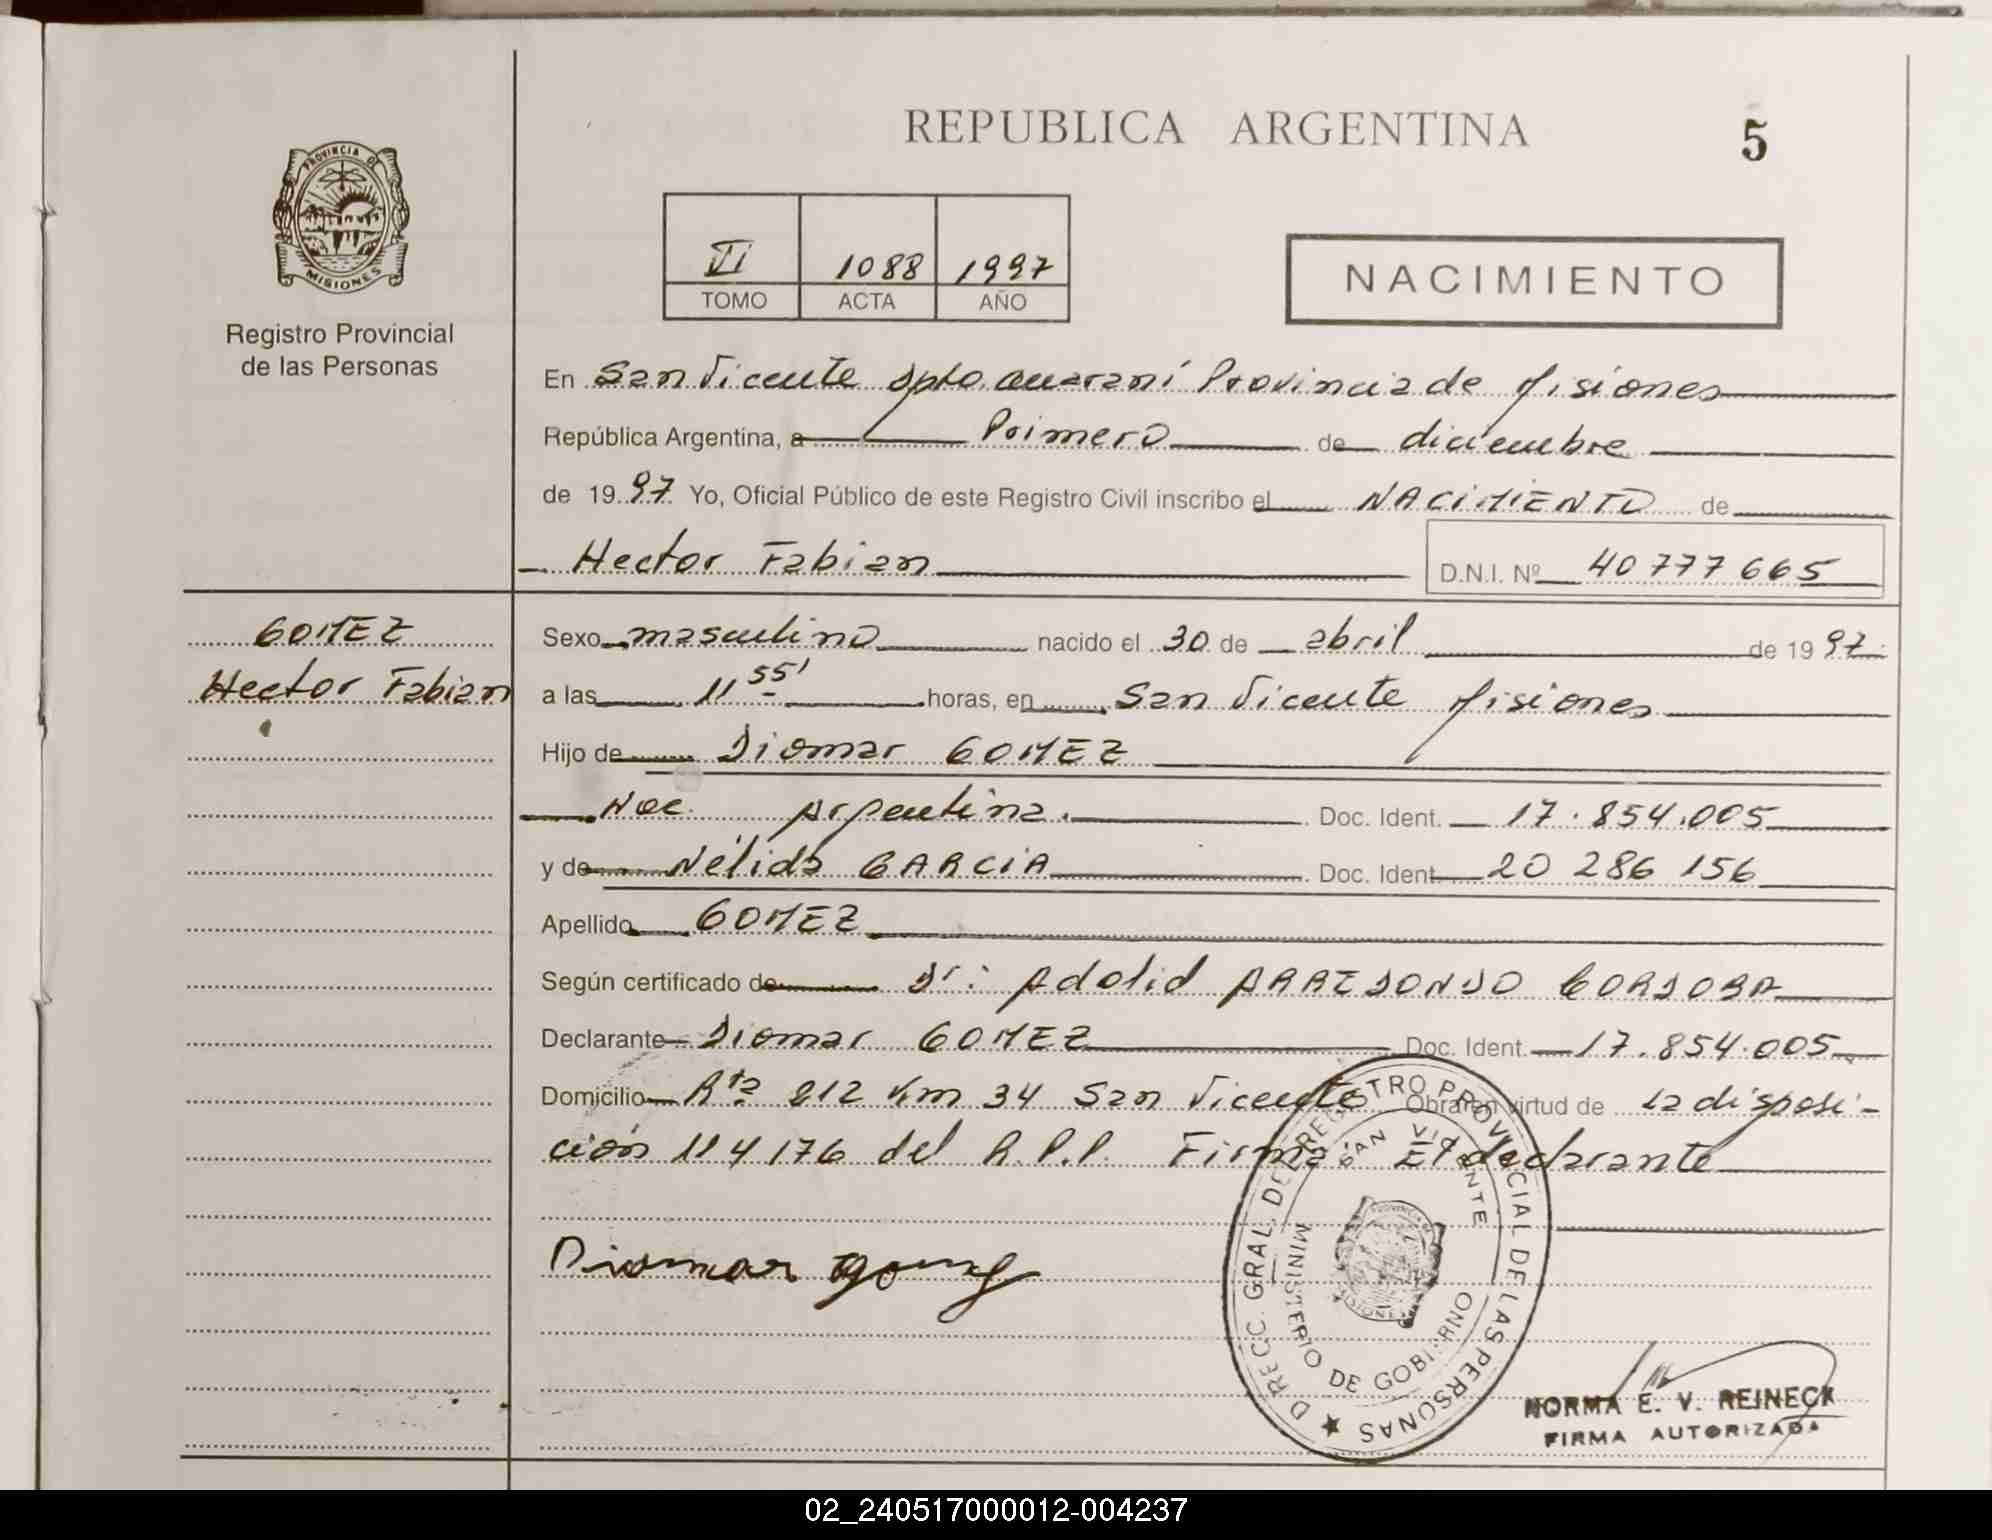 REPUBLICA ARGENTINA
5
PROVINCIA DE
MISIONES
Registro Provincial
de las Personas
VI 1088 1997
TOMO ACTA AÑO
NACIMIENTO
En San Vicente Dpto. Guaraní Provincia de Misiones
República Argentina, a Primero de diciembre
de 1997 Yo, Oficial Público de este Registro Civil inscribo el NACIMIENTO de
Hector Fabian D.N.I. Nº 40 777 665
GOMEZ
Hector Fabian
Sexo masculino nacido el 30 de abril de 1997
a las 11 55' horas, en San Vicente Misiones
Hijo de Diomar GOMEZ
Nac. Argentina. Doc. Ident. 17.854.005
y de Nélida GARCIA Doc. Ident. 20 286 156
Apellido GOMEZ
Según certificado de Dr: Adolid ARREDONDO CORDOBA
Declarante Diomar GOMEZ Doc. Ident. 17.854.005
Domicilio Rta 212 Km 34 San Vicente Obrar en virtud de la disposi-
ción 114176 del R.P.P. Firma: El declarante
Diomar Gomez
DIRECC. GRAL. DE REGISTRO PROVINCIAL DE LAS PERSONAS
SAN VICENTE
MINISTERIO DE GOBIERNO
NORMA E. V. REINECK
FIRMA AUTORIZADA
02_240517000012-004237